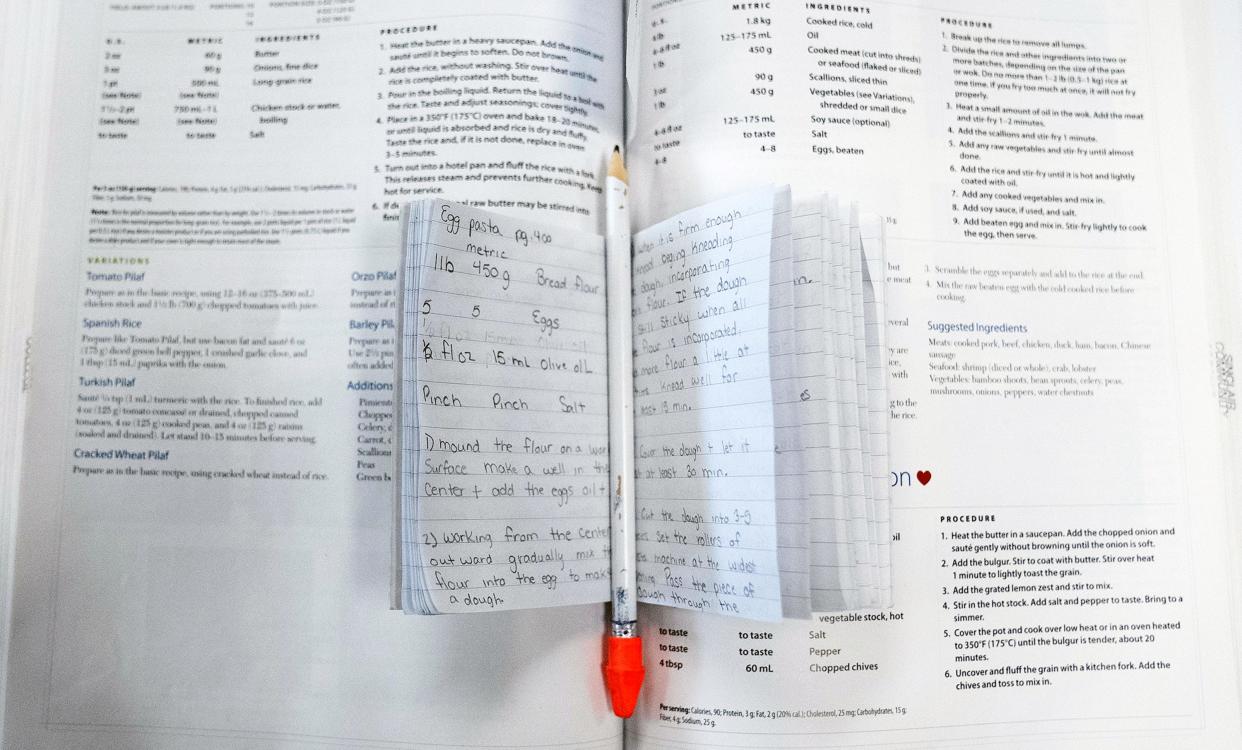 PROCEDURE
1. Heat the butter in a heavy saucepan. Add the onion and
sauté until it begins to soften. Do not brown.
2. Add the rice, without washing. Stir over heat until the
rice is completely coated with butter.
3. Pour in the boiling liquid. Return the liquid to a boil with
the rice. Taste and adjust seasonings; cover tightly.
4. Place in a 350°F (175°C) oven and bake 18–20 minutes,
or until liquid is absorbed and rice is dry and fluffy.
Taste the rice and, if it is not done, replace in oven
3–5 minutes.
5. Turn out into a hotel pan and fluff the rice with a fork.
This releases steam and prevents further cooking. Keep
hot for service.
6. If de
raw butter may be stirred into
U.S. METRIC INGREDIENTS
Butter
Onions, fine dice
Long-grain rice
(see Note) (see Note)
Chicken stock or water,
boiling
(see Note) (see Note)
to taste to taste Salt
VARIATIONS
Tomato Pilaf
Prepare as in the basic recipe, using 12–16 oz (375–500 mL)
chicken stock and 1½ lb (700 g) chopped tomatoes with juice.
Spanish Rice
Prepare like Tomato Pilaf, but use bacon fat and sauté 6 oz
(175 g) diced green bell pepper, 1 crushed garlic clove, and
1 tbsp (15 mL) paprika with the onion.
Turkish Pilaf
Sauté ¼ tsp (1 mL) turmeric with the rice. To finished rice, add
4 oz (125 g) tomato concassé or drained, chopped canned
tomatoes, 4 oz (125 g) cooked peas, and 4 oz (125 g) raisins
(soaked and drained). Let stand 10–15 minutes before serving.
Cracked Wheat Pilaf
Prepare as in the basic recipe, using cracked wheat instead of rice.
Orzo Pilaf
Prepare as i
instead of r
Barley Pil
Prepare as
Use 2½ pin
often added
Additions
Pimiento
Choppe
Celery, d
Carrot, c
Scallion
Peas
Green b
Egg pasta pg.400
metric
1lb 450g Bread flour
5 5 Eggs
½ fl oz 15 mL olive oil
Pinch Pinch Salt
1) mound the flour on a wor
Surface make a well in the
Center + add the eggs oil +
2) working from the center
outward gradually mix th
flour into the egg to make
a dough.
when it is firm enough
knead beging kneading
dough, incorporating
flour. If the dough
still sticky when all
flour is incorporated.
more flour a little at
Knead well for
15 min.
Cover the dough + let it
at least 30 min.
Cut the dough into 3-5
Set the rollers of
machine at the widest
Pass the piece of
dough through the
in.
es
METRIC INGREDIENTS
1.8 kg Cooked rice, cold
125–175 mL Oil
450 g Cooked meat (cut into shreds)
or seafood (flaked or sliced)
90 g Scallions, sliced thin
450 g Vegetables (see Variations),
shredded or small dice
125–175 mL Soy sauce (optional)
to taste Salt
4–8 Eggs, beaten
PROCEDURE
1. Break up the rice to remove all lumps.
2. Divide the rice and other ingredients into two or
more batches, depending on the size of the pan
or wok. Do no more than 1–2 lb (0.5–1 kg) rice at
one time. If you fry too much at once, it will not fry
properly.
3. Heat a small amount of oil in the wok. Add the meat
and stir-fry 1–2 minutes.
4. Add the scallions and stir-fry 1 minute.
5. Add any raw vegetables and stir-fry until almost
done.
6. Add the rice and stir-fry until it is hot and lightly
coated with oil.
7. Add any cooked vegetables and mix in.
8. Add soy sauce, if used, and salt.
9. Add beaten egg and mix in. Stir-fry lightly to cook
the egg, then serve.
3. Scramble the eggs separately and add to the rice at the end.
4. Mix the raw beaten egg with the cold cooked rice before
cooking.
Suggested Ingredients
Meats: cooked pork, beef, chicken, duck, ham, bacon, Chinese
sausage
Seafood: shrimp (diced or whole), crab, lobster
Vegetables: bamboo shoots, bean sprouts, celery, peas,
mushrooms, onions, peppers, water chestnuts
on
PROCEDURE
1. Heat the butter in a saucepan. Add the chopped onion and
sauté gently without browning until the onion is soft.
2. Add the bulgur. Stir to coat with butter. Stir over heat
1 minute to lightly toast the grain.
3. Add the grated lemon zest and stir to mix.
4. Stir in the hot stock. Add salt and pepper to taste. Bring to a
simmer.
5. Cover the pot and cook over low heat or in an oven heated
to 350°F (175°C) until the bulgur is tender, about 20
minutes.
6. Uncover and fluff the grain with a kitchen fork. Add the
chives and toss to mix in.
vegetable stock, hot
to taste to taste Salt
to taste to taste Pepper
4 tbsp 60 mL Chopped chives
Per serving: Calories, 90; Protein, 3 g; Fat, 2 g (20% cal.); Cholesterol, 25 mg; Carbohydrates, 15 g;
Fiber, 4 g; Sodium, 25 g.